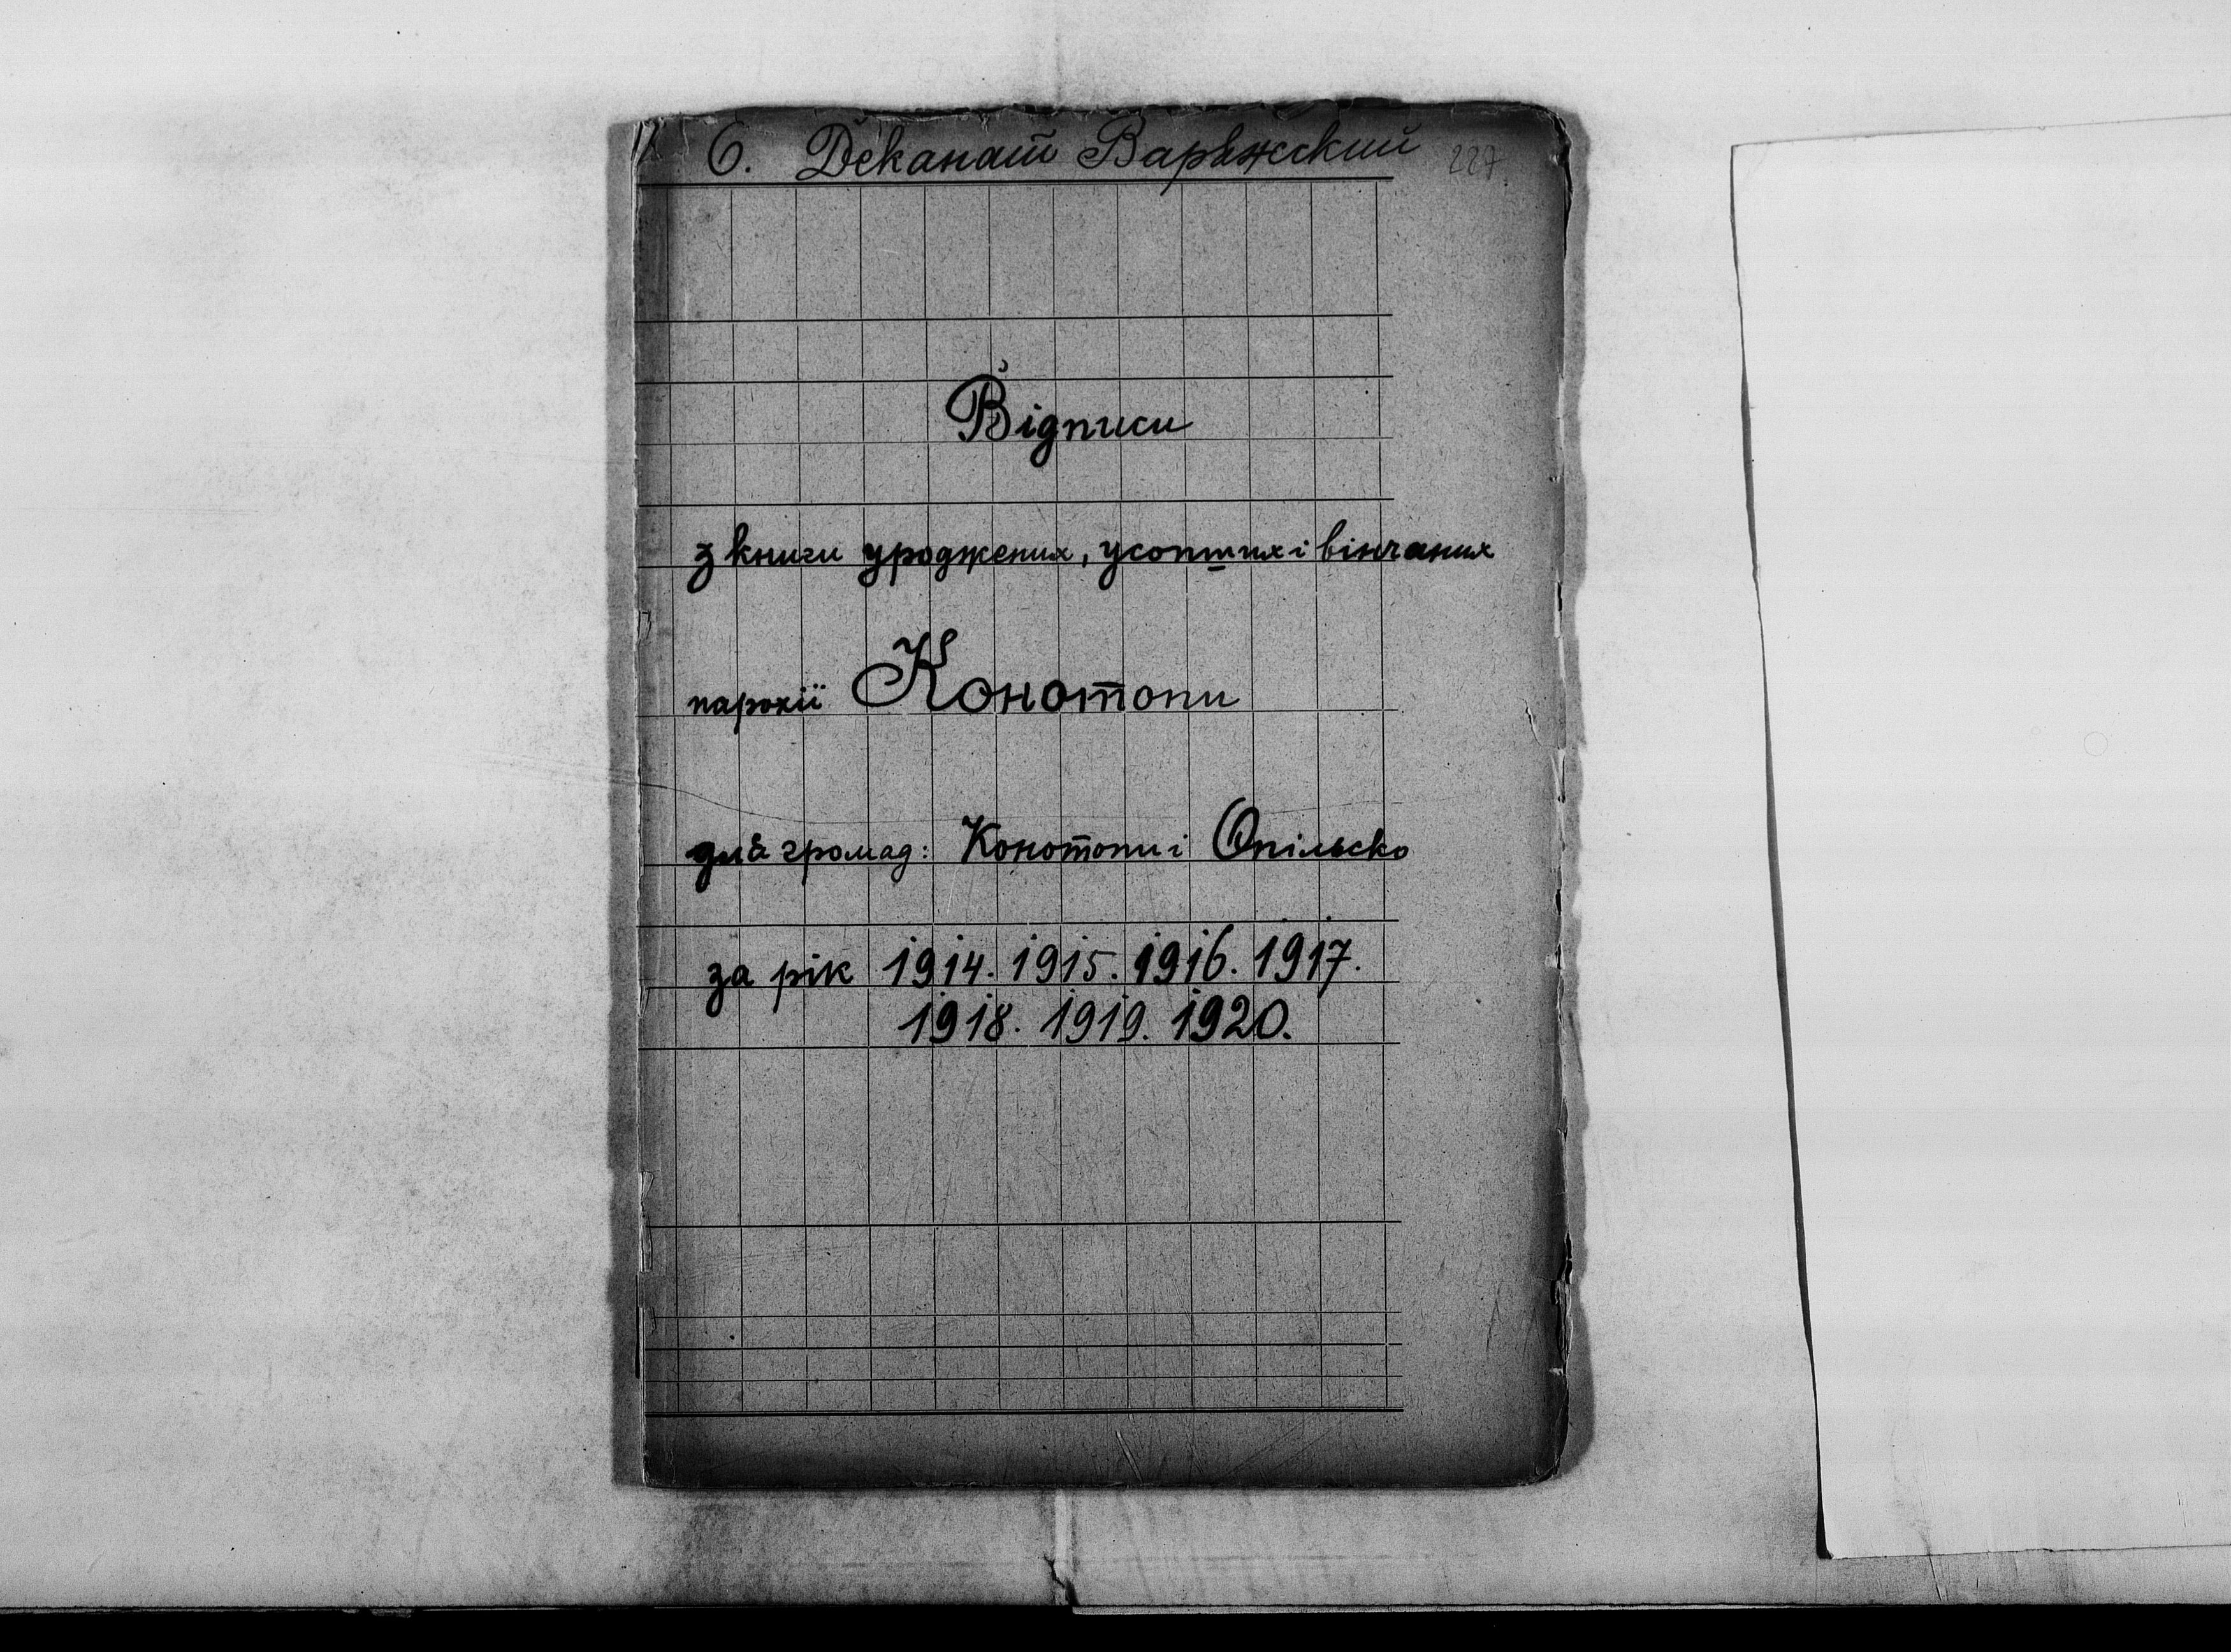 6. Деканат Варяжский 227
Відписи
з книги уроджених, усопших і вінчаних
парохії Конотопи
для громад: Конотопи і Опільско
за рік 1914. 1915. 1916. 1917.
1918. 1919. 1920.